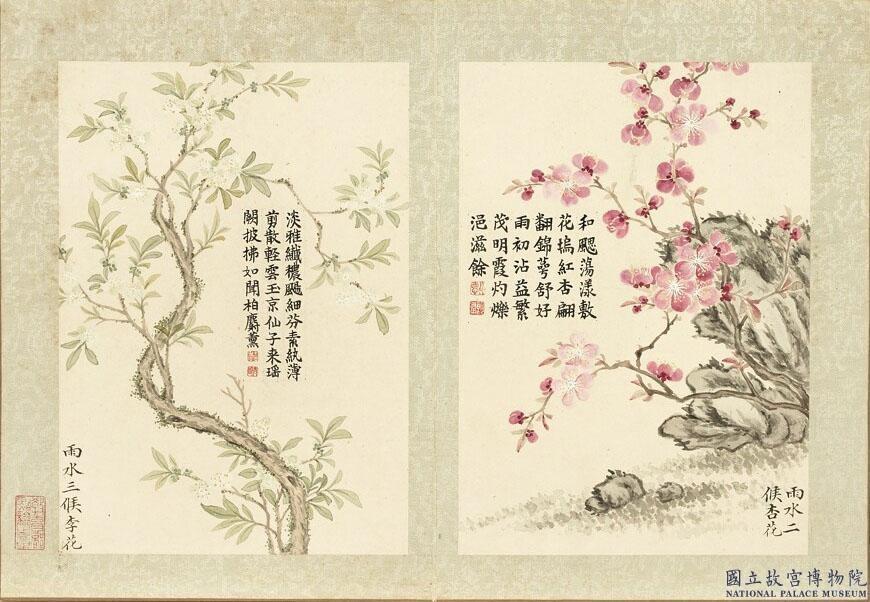 和颸蕩漾敷
花塢紅杏翩
翻錦萼舒好
雨初沾益繁
茂明霞灼爍
浥滋餘
雨水二
候杏花
淡雅纖穠颺細芬素紈薄
剪散輕雲玉京仙子来瑶
闕披拂如聞柏麝薰
雨水三候李花
國立故宮博物院
NATIONAL PALACE MUSEUM